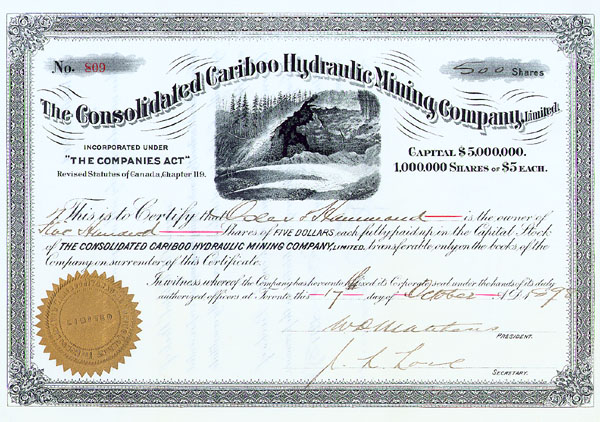 No. 809
500 Shares
The Consolidated Cariboo Hydraulic Mining Company, Limited.
INCORPORATED UNDER
"THE COMPANIES ACT"
Revised Statutes of Canada, Chapter 119.
CAPITAL $5,000,000.
1,000,000 SHARES OF $5 EACH.
This is to Certify that Hammond is the owner of
Five Hundred Shares of FIVE DOLLARS each fully paid up in the Capital Stock
of THE CONSOLIDATED CARIBOO HYDRAULIC MINING COMPANY, LIMITED. transferable only on the books of the
Company on surrender of this Certificate.
In witness whereof the Company has hereunto affixed its Corporate seal under the hands of its duly
authorized officers at Toronto this 17 day of October 1898
PRESIDENT.
SECRETARY.
LIMITED